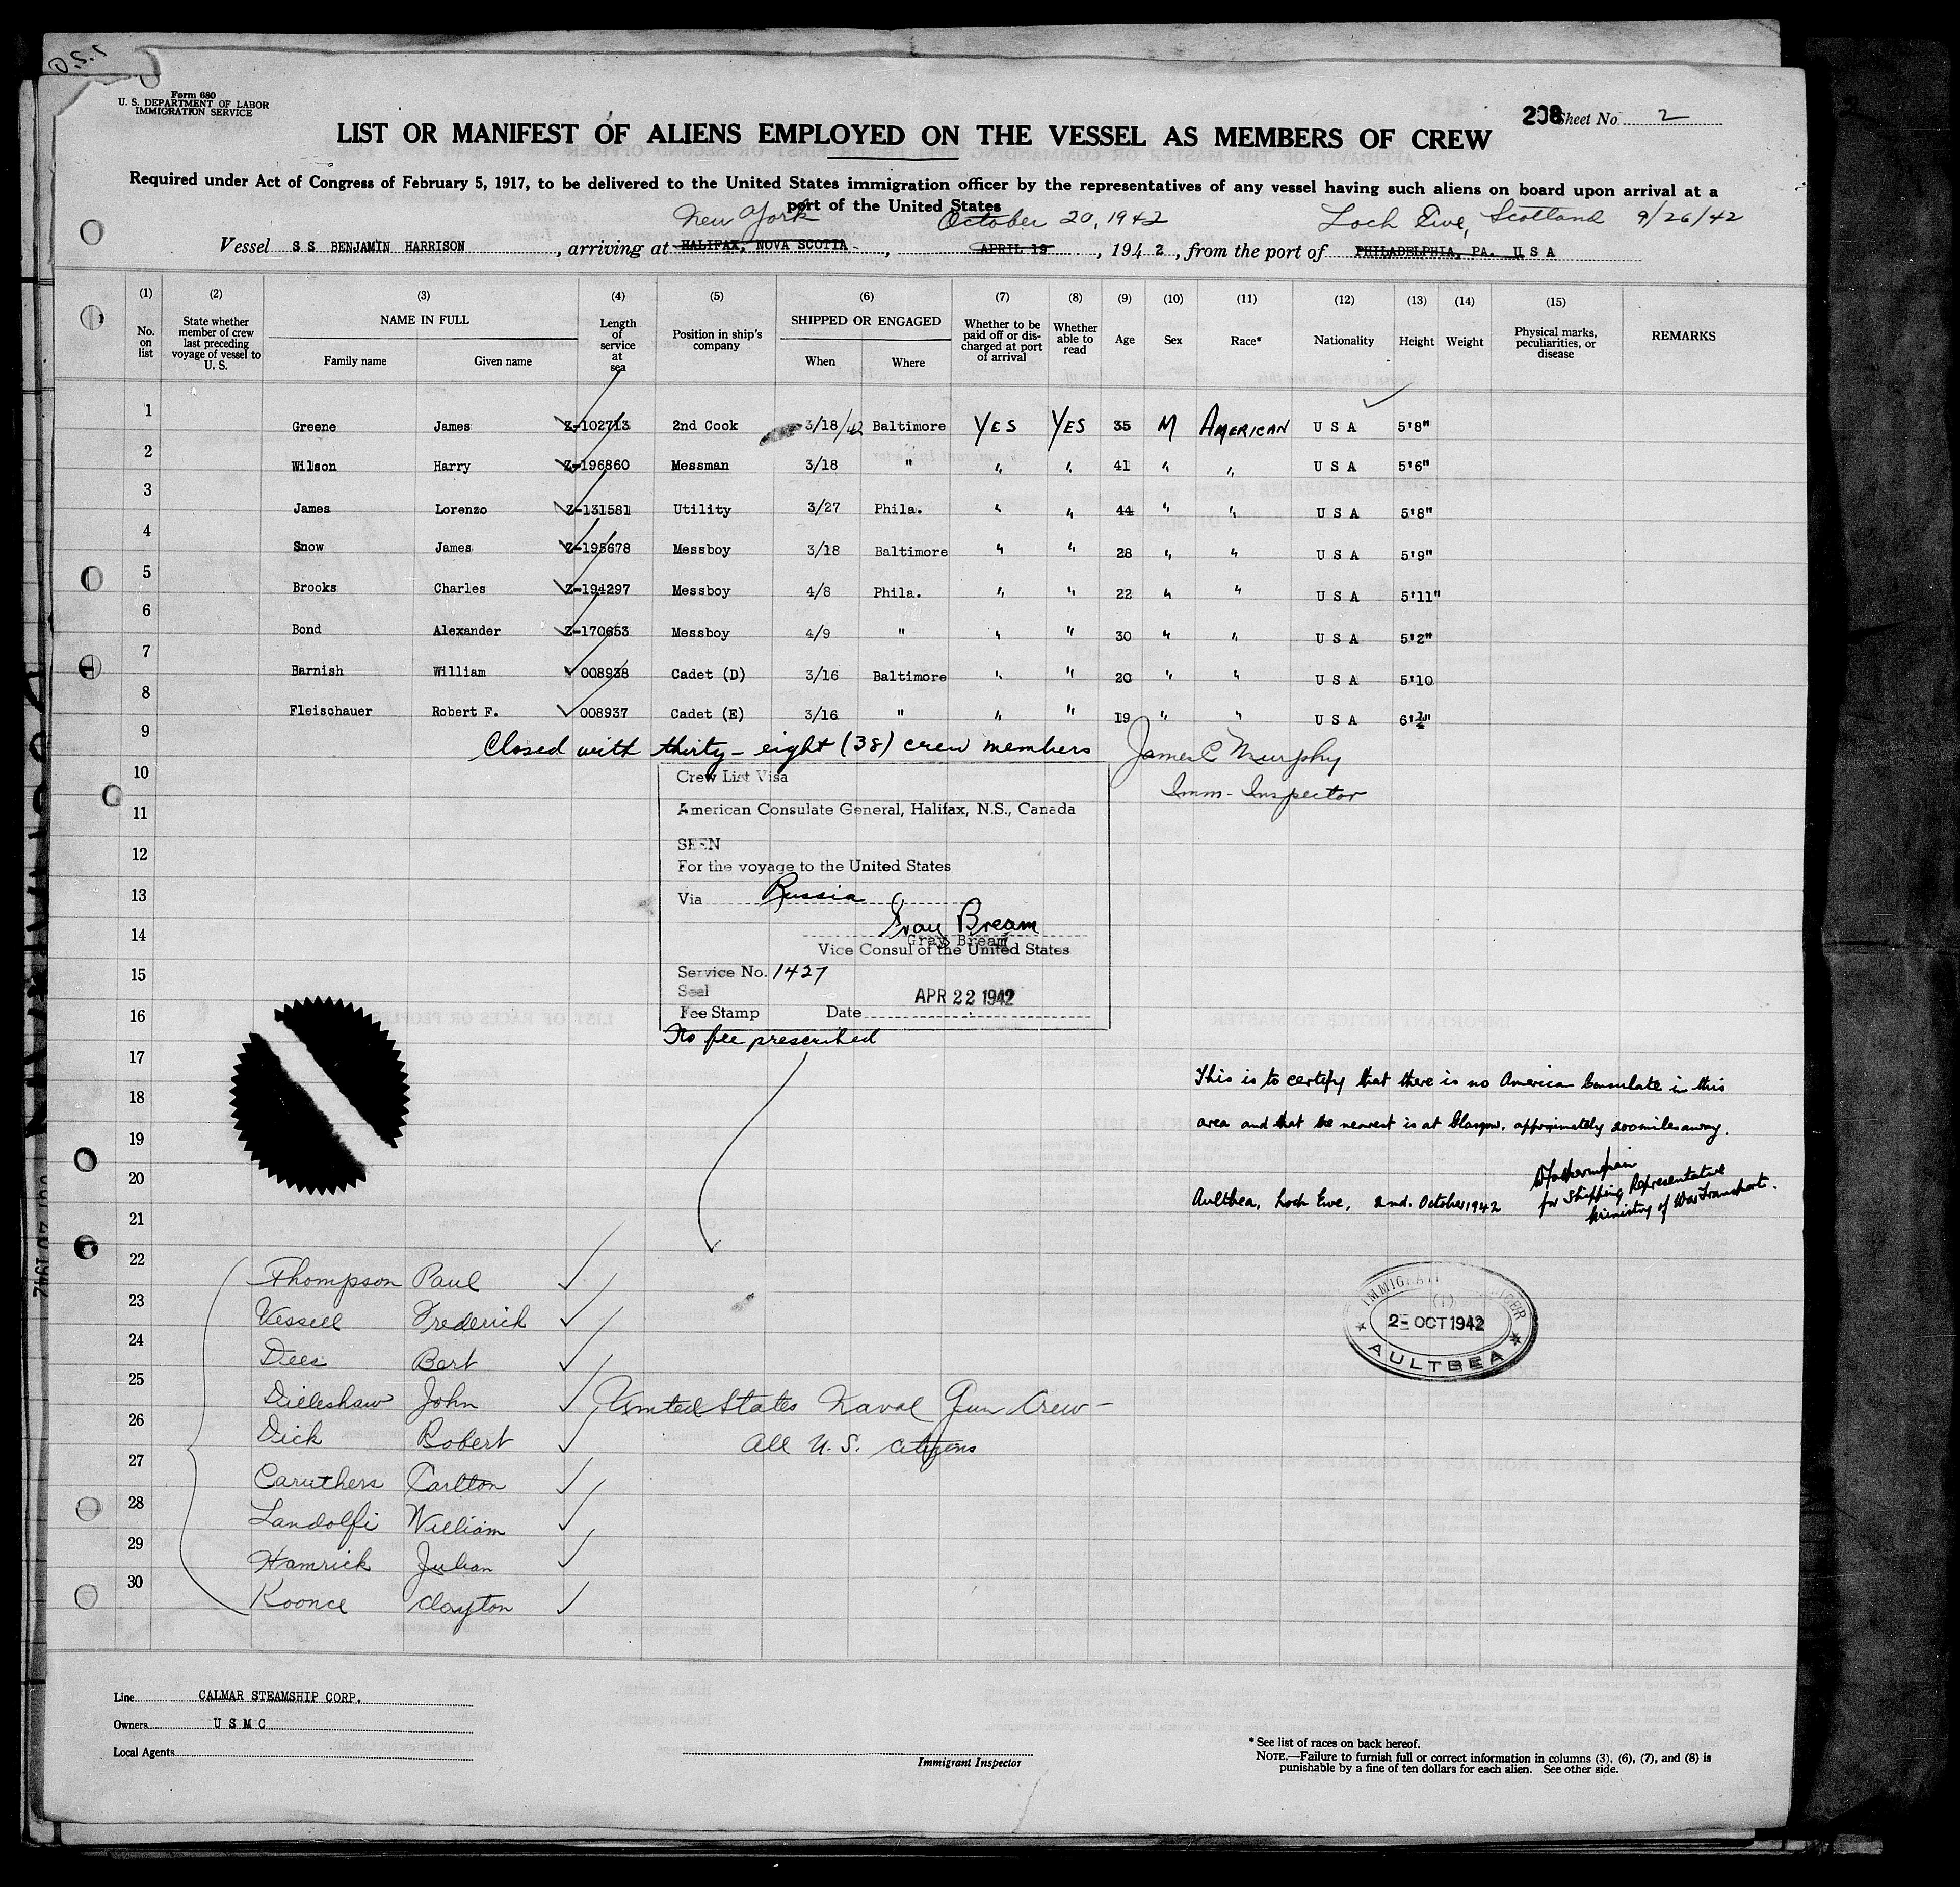 Form 680
U. S. DEPARTMENT OF LABOR
IMMIGRATION SERVICE
208
Sheet No. 2
LIST OR MANIFEST OF ALIENS EMPLOYED ON THE VESSEL AS MEMBERS OF CREW
Required under Act of Congress of February 5, 1917, to be delivered to the United States immigration officer by the representatives of any vessel having such aliens on board upon arrival at a
port of the United States
New York October 20, 1942 Loch Ewe, Scotland 9/26/42
Vessel S S BENJAMIN HARRISON, arriving at HALIFAX, NOVA SCOTIA, APRIL 19, 1942, from the port of PHILADELPHIA, PA. U S A
(1) (2) (3) (4) (5) (6) (7) (8) (9) (10) (11) (12) (13) (14) (15)
No. on list
State whether member of crew last preceding voyage of vessel to U. S.
NAME IN FULL
Family name Given name
Length of service at sea
Position in ship's company
SHIPPED OR ENGAGED
When Where
Whether to be paid off or discharged at port of arrival
Whether able to read
Age Sex Race* Nationality Height Weight
Physical marks, peculiarities, or disease
REMARKS
1 Greene James Z-102713 2nd Cook 3/18/42 Baltimore YES YES 35 M AMERICAN U S A 5'8"
2 Wilson Harry Z-196860 Messman 3/18 " " " 41 " " U S A 5'6"
3 James Lorenzo Z-131581 Utility 3/27 Phila. " " 44 " " U S A 5'8"
4 Snow James Z-195678 Messboy 3/18 Baltimore " " 28 " " U S A 5'9"
5 Brooks Charles Z-194297 Messboy 4/8 Phila. " " 22 " " U S A 5'11"
6 Bond Alexander Z-170653 Messboy 4/9 " " " 30 " " U S A 5'2"
7 Barnish William 008938 Cadet (D) 3/16 Baltimore " " 20 " " U S A 5'10
8 Fleischauer Robert F. 008937 Cadet (E) 3/16 " " " 19 " " U S A
9 Closed with thirty-eight (38) crew members James C Murphy
Imm-Inspector
10
11
12
13
14
15
16
17
18
19
20
21
Crew List Visa
American Consulate General, Halifax, N.S., Canada
SEEN
For the voyage to the United States
Via Russia
Gray Bream
Gray Bream
Vice Consul of the United States
Service No. 1427
Seal
APR 22 1942
Fee Stamp Date
No fee prescribed
This is to certify that there is no American Consulate in this
area and that the nearest is at Glasgow, approximately 200 miles away.
for Shipping Representative
Ministry of War Transport.
Aultbea, Loch Ewe, 2nd. October 1942
2- OCT 1942
AULTBEA
22 Thompson Paul
23 Vessell Frederick
24 Dees Bert
25 John
26 Dick Robert
27 Caruthers Carlton
28 Landolfi William
29 Hamrick Julian
30 Koonce Clayton
United States Naval Gun Crew-
All U. S. citizens
Line CALMAR STEAMSHIP CORP.
Owners U S M C
Local Agents
Immigrant Inspector
* See list of races on back hereof.
NOTE.—Failure to furnish full or correct information in columns (3), (6), (7), and (8) is
punishable by a fine of ten dollars for each alien. See other side.